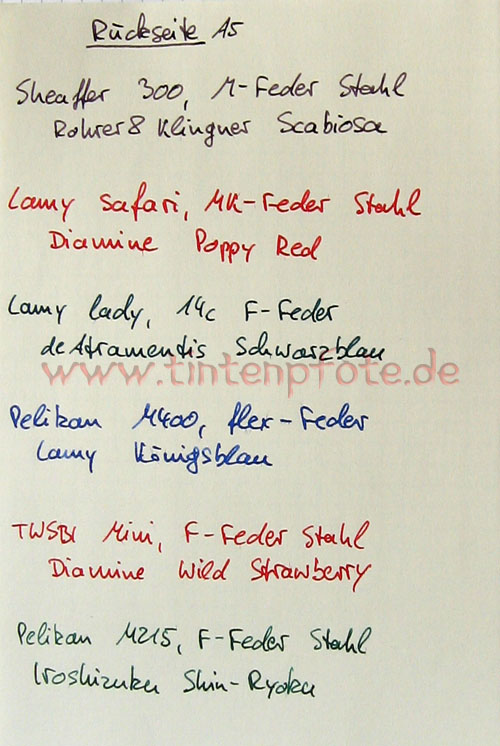 Rückseite A5
Sheaffer 300, M-Feder Stahl
Rohrer & Klingner Scabiosa
Lamy Safari, MK-Feder Stahl
Diamine Poppy Red
Lamy lady, 14c F-Feder
de Atramentis Schwarzblau
www.tintenpfote.de
Pelikan M400, flex-Feder
Lamy Königsblau
TWSBI Mini, F-Feder Stahl
Diamine Wild Strawberry
Pelikan M215, F-Feder Stahl
Iroshizuku Shin-Ryoku